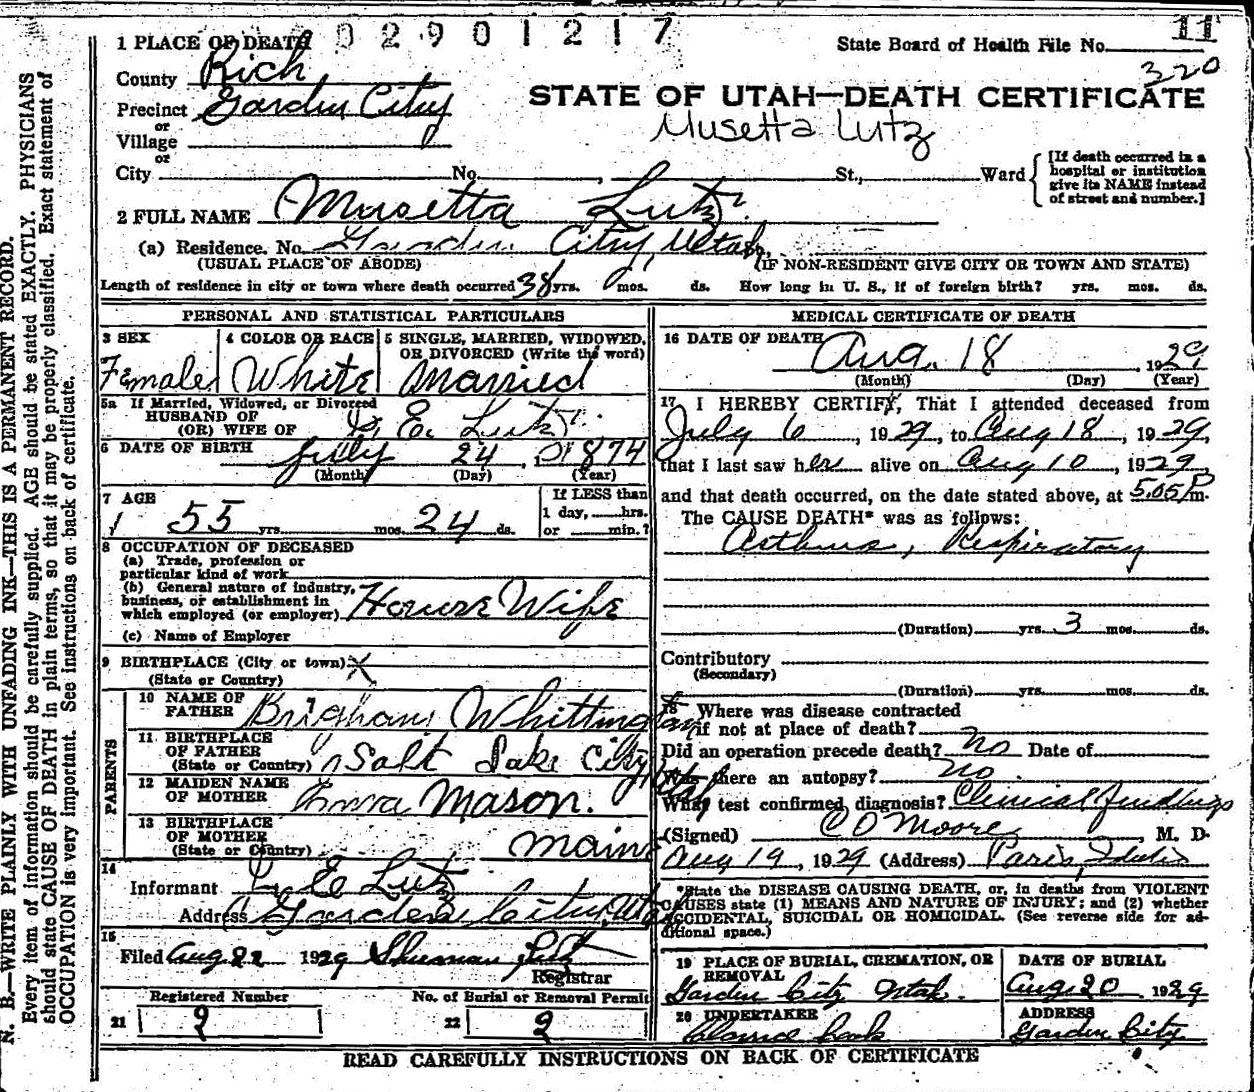 02901217
11
1 PLACE OF DEATH
State Board of Health File No.
320
County Rich
STATE OF UTAH—DEATH CERTIFICATE
Precinct Garden City
or
Musetta Lutz
Village
or
City No. , St., Ward
[If death occurred in a hospital or institution give its NAME instead of street and number.]
2 FULL NAME Musetta Lutz
(a) Residence. No. Garden City, Utah,
(USUAL PLACE OF ABODE) (IF NON-RESIDENT GIVE CITY OR TOWN AND STATE)
Length of residence in city or town where death occurred 38 yrs. 0 mos. ds. How long in U. S., if of foreign birth? yrs. mos. ds.
PERSONAL AND STATISTICAL PARTICULARS
3 SEX
Female
4 COLOR OR RACE
White
5 SINGLE, MARRIED, WIDOWED,
OR DIVORCED (Write the word)
Married
5a If Married, Widowed, or Divorced
HUSBAND OF
(OR) WIFE OF E. Lutz
6 DATE OF BIRTH July 24, 1874
(Month) (Day) (Year)
7 AGE
55 yrs. mos. 24 ds.
If LESS than
1 day, hrs.
or min.?
8 OCCUPATION OF DECEASED
(a) Trade, profession or
particular kind of work
(b) General nature of industry,
business, or establishment in
which employed (or employer) House Wife
(c) Name of Employer
9 BIRTHPLACE (City or town) X
(State or Country)
PARENTS
10 NAME OF
FATHER Brigham Whittington
11 BIRTHPLACE
OF FATHER
(State or Country) Salt Lake City, Utah
12 MAIDEN NAME
OF MOTHER Anna Mason.
13 BIRTHPLACE
OF MOTHER
(State or Country) Maine
14
Informant E Lutz
Address Garden City, Utah
15
Filed Aug 22 1929 Sherman Lutz
Registrar
Registered Number
21 2
No. of Burial or Removal Permit
22 2
MEDICAL CERTIFICATE OF DEATH
16 DATE OF DEATH
Aug. 18 1929
(Month) (Day) (Year)
17 I HEREBY CERTIFY, That I attended deceased from
July 6, 1929, to Aug 18, 1929,
that I last saw her alive on Aug 10, 1929,
and that death occurred, on the date stated above, at 5.05 P m.
The CAUSE DEATH* was as follows:
Asthma, Respiratory
(Duration) yrs. 3 mos. ds.
Contributory
(Secondary)
(Duration) yrs. mos. ds.
18 Where was disease contracted
if not at place of death?
Did an operation precede death? No Date of
Was there an autopsy? No
What test confirmed diagnosis? Clinical findings
(Signed) C O Moore M. D.
Aug 19, 1929 (Address) Paris, Idaho
*State the DISEASE CAUSING DEATH, or, in deaths from VIOLENT
CAUSES state (1) MEANS AND NATURE OF INJURY; and (2) whether
ACCIDENTAL, SUICIDAL OR HOMICIDAL. (See reverse side for ad-
ditional space.)
19 PLACE OF BURIAL, CREMATION, OR
REMOVAL
Garden City Utah.
DATE OF BURIAL
Aug 20 1929
20 UNDERTAKER
Cook
ADDRESS
Garden City
READ CAREFULLY INSTRUCTIONS ON BACK OF CERTIFICATE
N. B.—WRITE PLAINLY WITH UNFADING INK—THIS IS A PERMANENT RECORD.
Every item of information should be carefully supplied. AGE should be stated EXACTLY. PHYSICIANS
should state CAUSE OF DEATH in plain terms, so that it may be properly classified. Exact statement of
OCCUPATION is very important. See instructions on back of certificate.